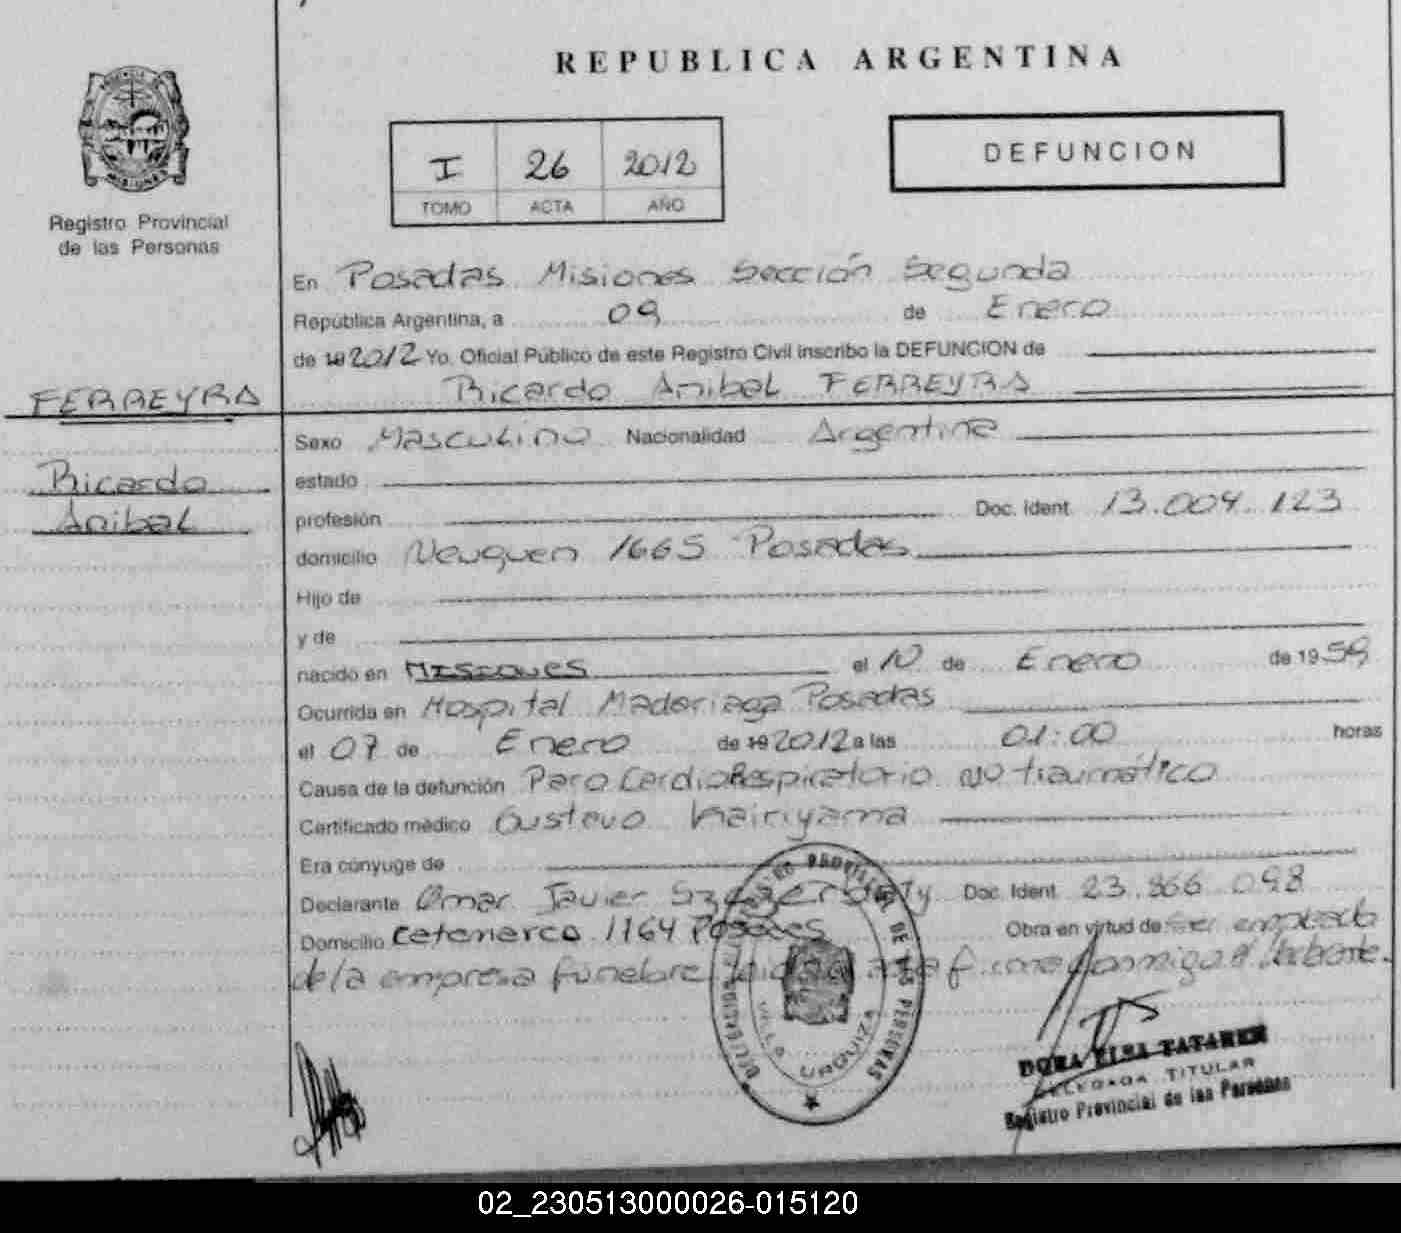 REPUBLICA ARGENTINA
MISIONES
Registro Provincial
de las Personas
I 26 2012
TOMO ACTA AÑO
DEFUNCION
En Posadas Misiones Sección Segunda
República Argentina, a 09 de Enero
de 19 2012 Yo. Oficial Público de este Registro Civil inscribo la DEFUNCION de
Ricardo Anibal FERREYRA
FERREYRA
Ricardo
Anibal
Sexo Masculino Nacionalidad Argentina
estado
profesión Doc. Ident. 13.004.123
domicilio Neuquen 1665 Posadas
Hijo de
y de
nacido en MISIONES el 10 de Enero de 19 59
Ocurrida en Hospital Madariaga Posadas
el 07 de Enero de 19 2012 a las 01:00 horas
Causa de la defunción Paro CardioRespiratorio No traumático
Certificado médico Gustavo Kairiyama
Era cónyuge de
Declarante Omar Javier Doc. Ident. 23.866.098
Domicilio Catamarca 1164 Posadas Obra en virtud de ser empleado
de la empresa fúnebre acta firma conmigo el declarante.
REGISTRO PROVINCIAL DE LAS PERSONAS
VILLA URQUIZA
DORA ELSA TATAREN
DELEGADA TITULAR
Registro Provincial de las Personas
02_230513000026-015120